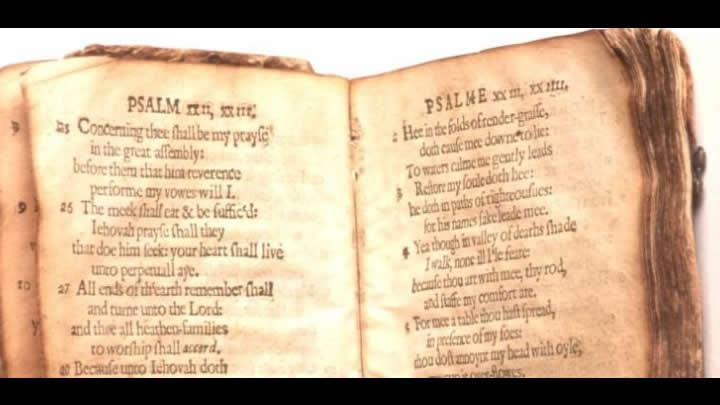 PSALM XXII, XXIII.
25 Concerning thee shall be my prayse
in the great assembly:
before them that him reverence
performe my vowes will I.
26 The meek shall eat & be suffic'd:
Iehovah prayse shall they
that doe him seek: your heart shall live
unto perpetuall aye.
27 All ends of th'earth remember shall
and turne unto the Lord:
and thee all heathen-families
to worship shall accord,
Because unto Iehovah doth
9
10
PSALME XXIII, XXIIII.
2 Hee in the folds of tender-grasse,
doth cause mee downe to lie:
To waters calme me gently leads
3 Restore my soule doth hee:
he doth in paths of righteousnes:
for his names sake leade mee.
4 Yea though in valley of deaths shade
I walk, none ill I'le feare:
because thou art with mee, thy rod,
and staffe my comfort are.
5 For mee a table thou hast spread,
in presence of my foes:
thou dost annoynt my head with oyle,